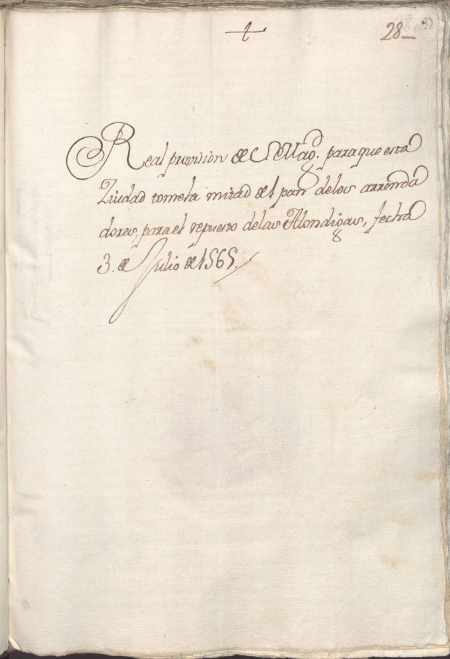 28
Real provision de S Magd. para que esta
Ziudad tome la mitad del pan de los arrenda
dores, para el repueso de las Alondigas, fecha
3. de Julio de 1565.